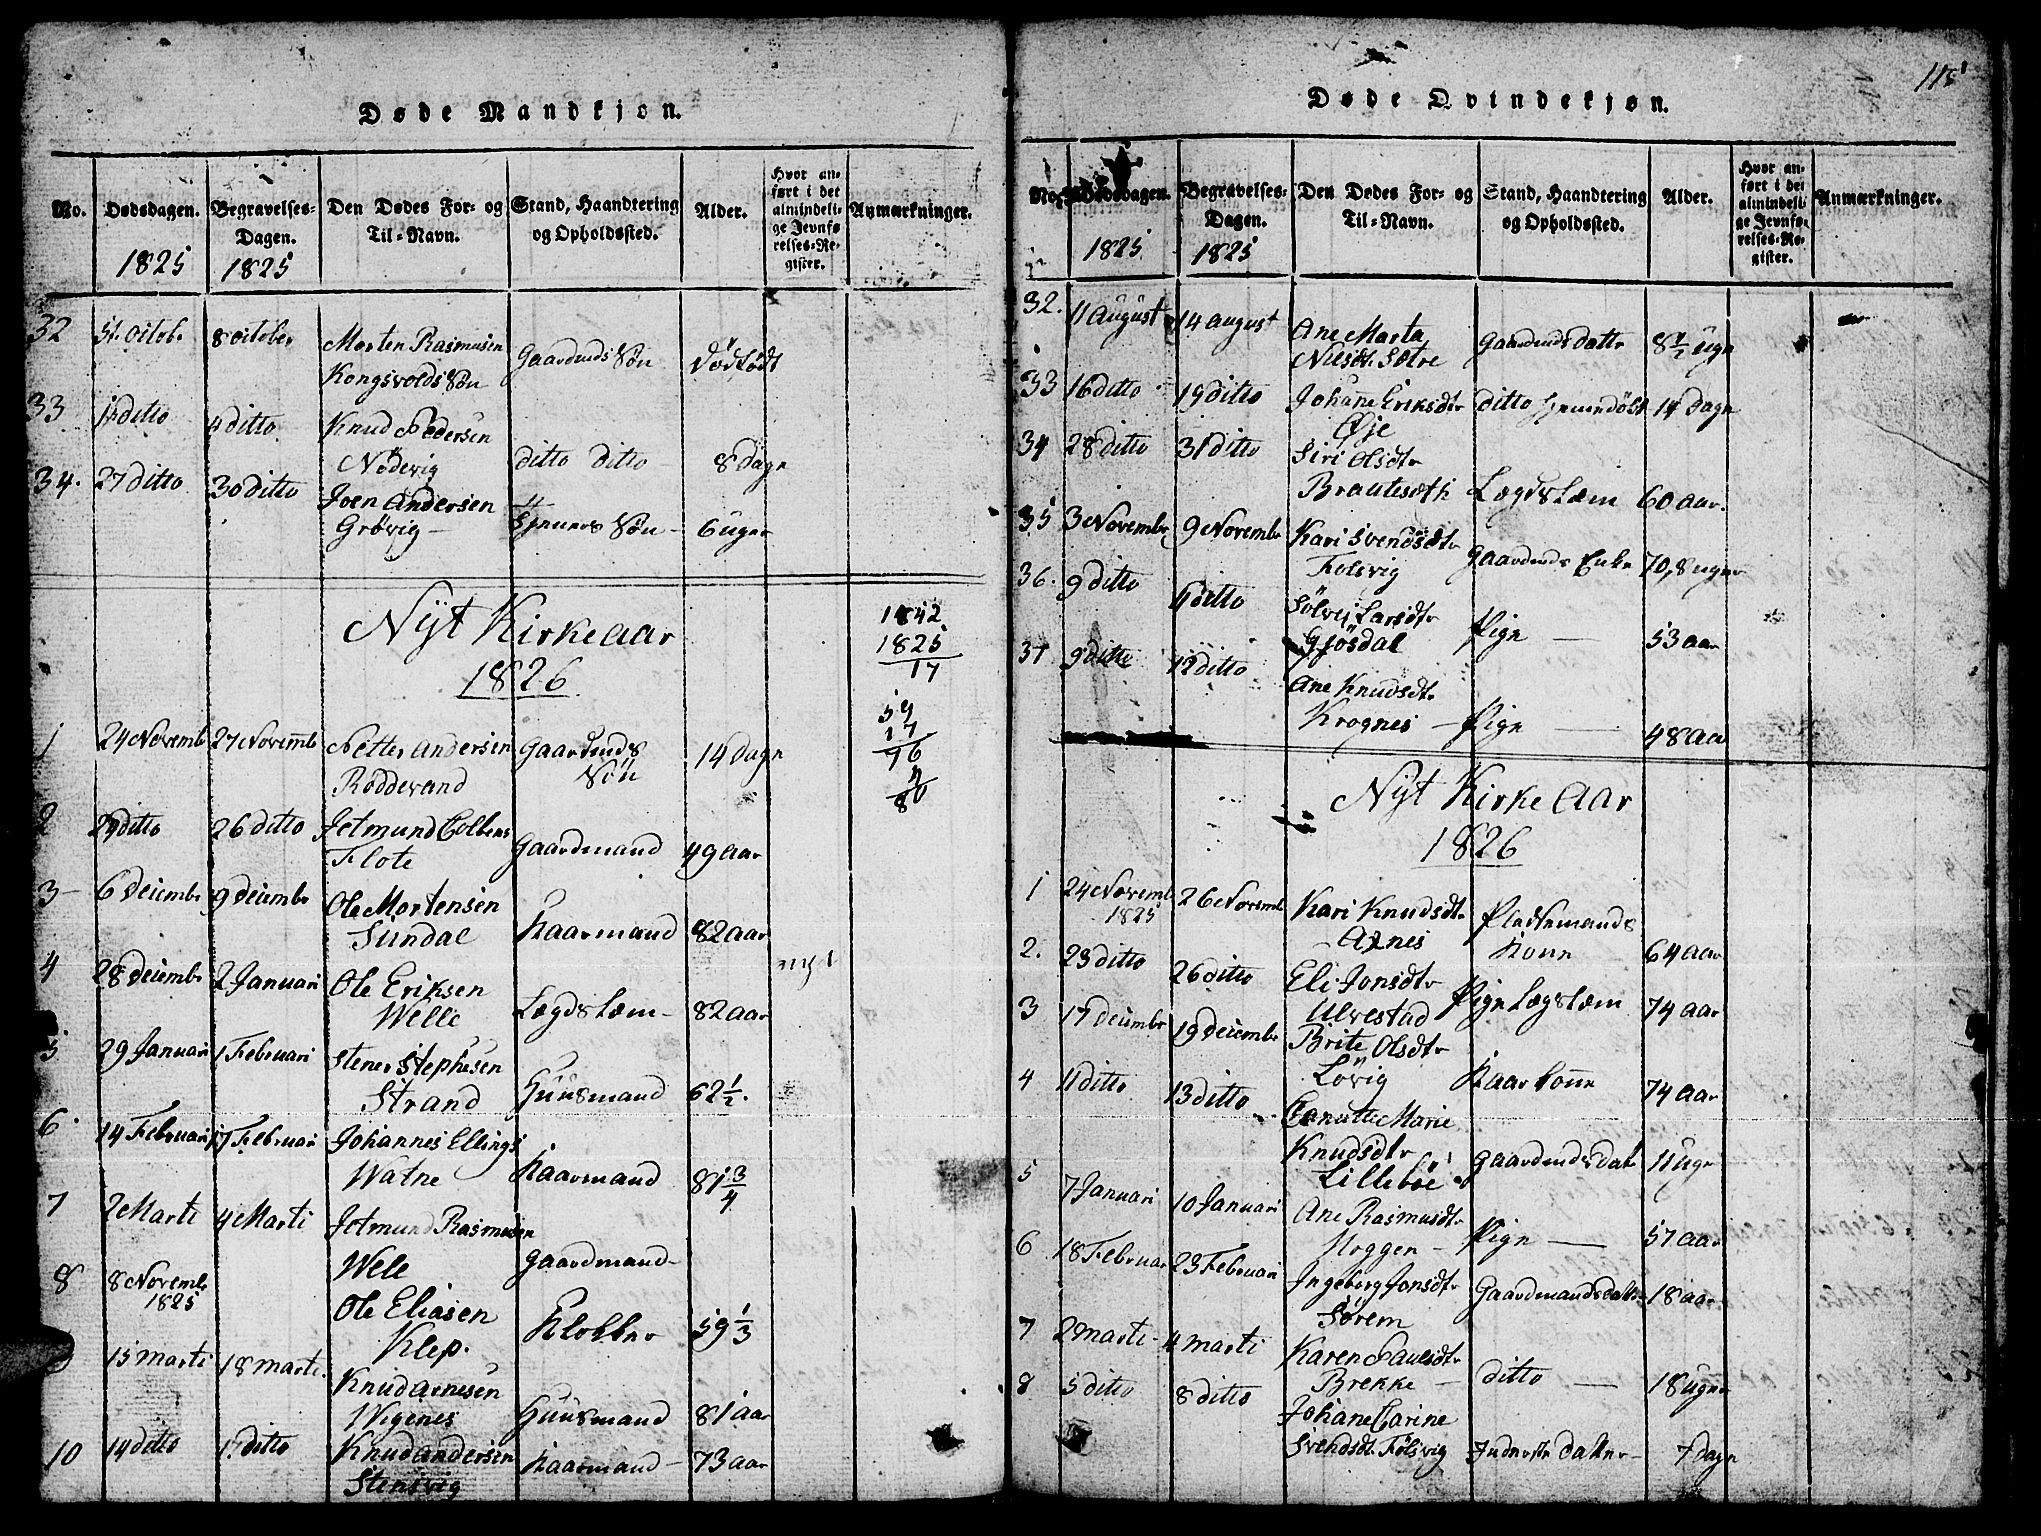 115
Døde Mandkjøn.
No.
Dødsdagen.
1825
Begravelses-
Dagen.
1825
Den Dødes For- og
Til-Navn.
Stand, Haandtering
og Opholdssted.
Alder.
Hvor an-
ført i det
almindeli-
ge Jevnfø-
relses-Re-
gister.
Anmærkninger.
32 octob. 8 october Morten Rasmusen Gaardmds Søn Dödfödt
Kongsvolds Søn
33 ditto 4 ditto Knud Pedersen ditto ditto 8 Dage
Nödevig
34. 27 ditto 30 ditto Joen Andersen Søn 6 uger
Grøvig
Nyt Kirkeaar
1826
1842
1825
17
59
17
76
4
80
1 24 Novemb 27 Novemb Petter Andersen Gaardmds 14 Dage
Rødderand Søn
2 ditto 26 ditto Jetmund Colbens Gaardmand 49 aar
Flote
3 6 Decembr 9 Decembr Ole Mortensen Kaarmand 82 aar
Sundal
4 28 Decembr 2 Januari Ole Eriksen Lægdslæm 82 aar
Welle
5 29 Januari 1 Februari Stener Stephesen Huusmand 62 1/2.
Strand
6. 14 Februari 17 Februari Johannes Ellings Kaarmand 81 3/4
Watne
7 2 Marti 4 Marti Jetmund Rasmusen Gaardmand
Wele
8 8 Novemb Ole Eliasen Klokker 59 1/3
1825 Klep.
15 marti 18 marti. Knud Arnesen Huusmand 81 aar
Wigenes
10 14 ditto 17 ditto Knud Andersen Kaarmand 73 aar
Stensvig
Døde Qvindekjøn.
No.
Dødsdagen.
1825
Begravelses-
Dagen.
1825
Den Dødes For- og
Til-Navn.
Stand, Haandtering
og Opholdssted.
Alder.
Hvor an-
ført i det
almindeli-
ge Jevnfø-
relses-Re-
gister.
Anmærkninger.
32. 11 August 14 August Ane Marta Gaardmds Datt 8 1/2 uge
Nilsdt. Sætre
33 16 ditto 19 ditto Johane Eriksdtr ditto 14 Dage
Øje
34 28 ditto 31 ditto Siri Olsdtr Lægdslæm 60 aar.
Brautesæth
35 3 Novembr 9 Novembr Kari Svendsdtr Gaardmds Enke 70, 8 uger
Folsvig
36. 9 ditto ditto Sölvi Larsdtr Pige 53 aar
Gjösdal
37 9 ditto 12 ditto Ane Knudsdtr Pige 48 aar
Krognes
Nyt Kirke Aar
1826
1 24 Novemb 26 Novemb Kari Knudsdtr Pladsemands
1825 Axnes Kone 64 aar
2. 23 ditto 26 ditto Eli Jonsdtr Pige Lægslæm 74 aar
Ulvestad
3 17 Decembr 19 Decembr Brite Olsdtr Kaarkone 74 aar
Lövig
4 11 ditto 13 ditto Canutta Marie
Knudsdtr Gaardmds dat 11 uge
Lilleböe
5 7 Januari 10 Januari Ane Rasmusdtr Pige 57 aar
Moggen
6 18 Februar 23 Februari Ingeberg Jonsdtr Gaardmandsdatter 18 aar
Sørem
7 2 marti 4 marti Karen Paulsdtr ditto 18 uger
Brekke
8 5 ditto 8 ditto Johane Carine
Svendsdt. Fölsvig Inderste Datter 7 Dage